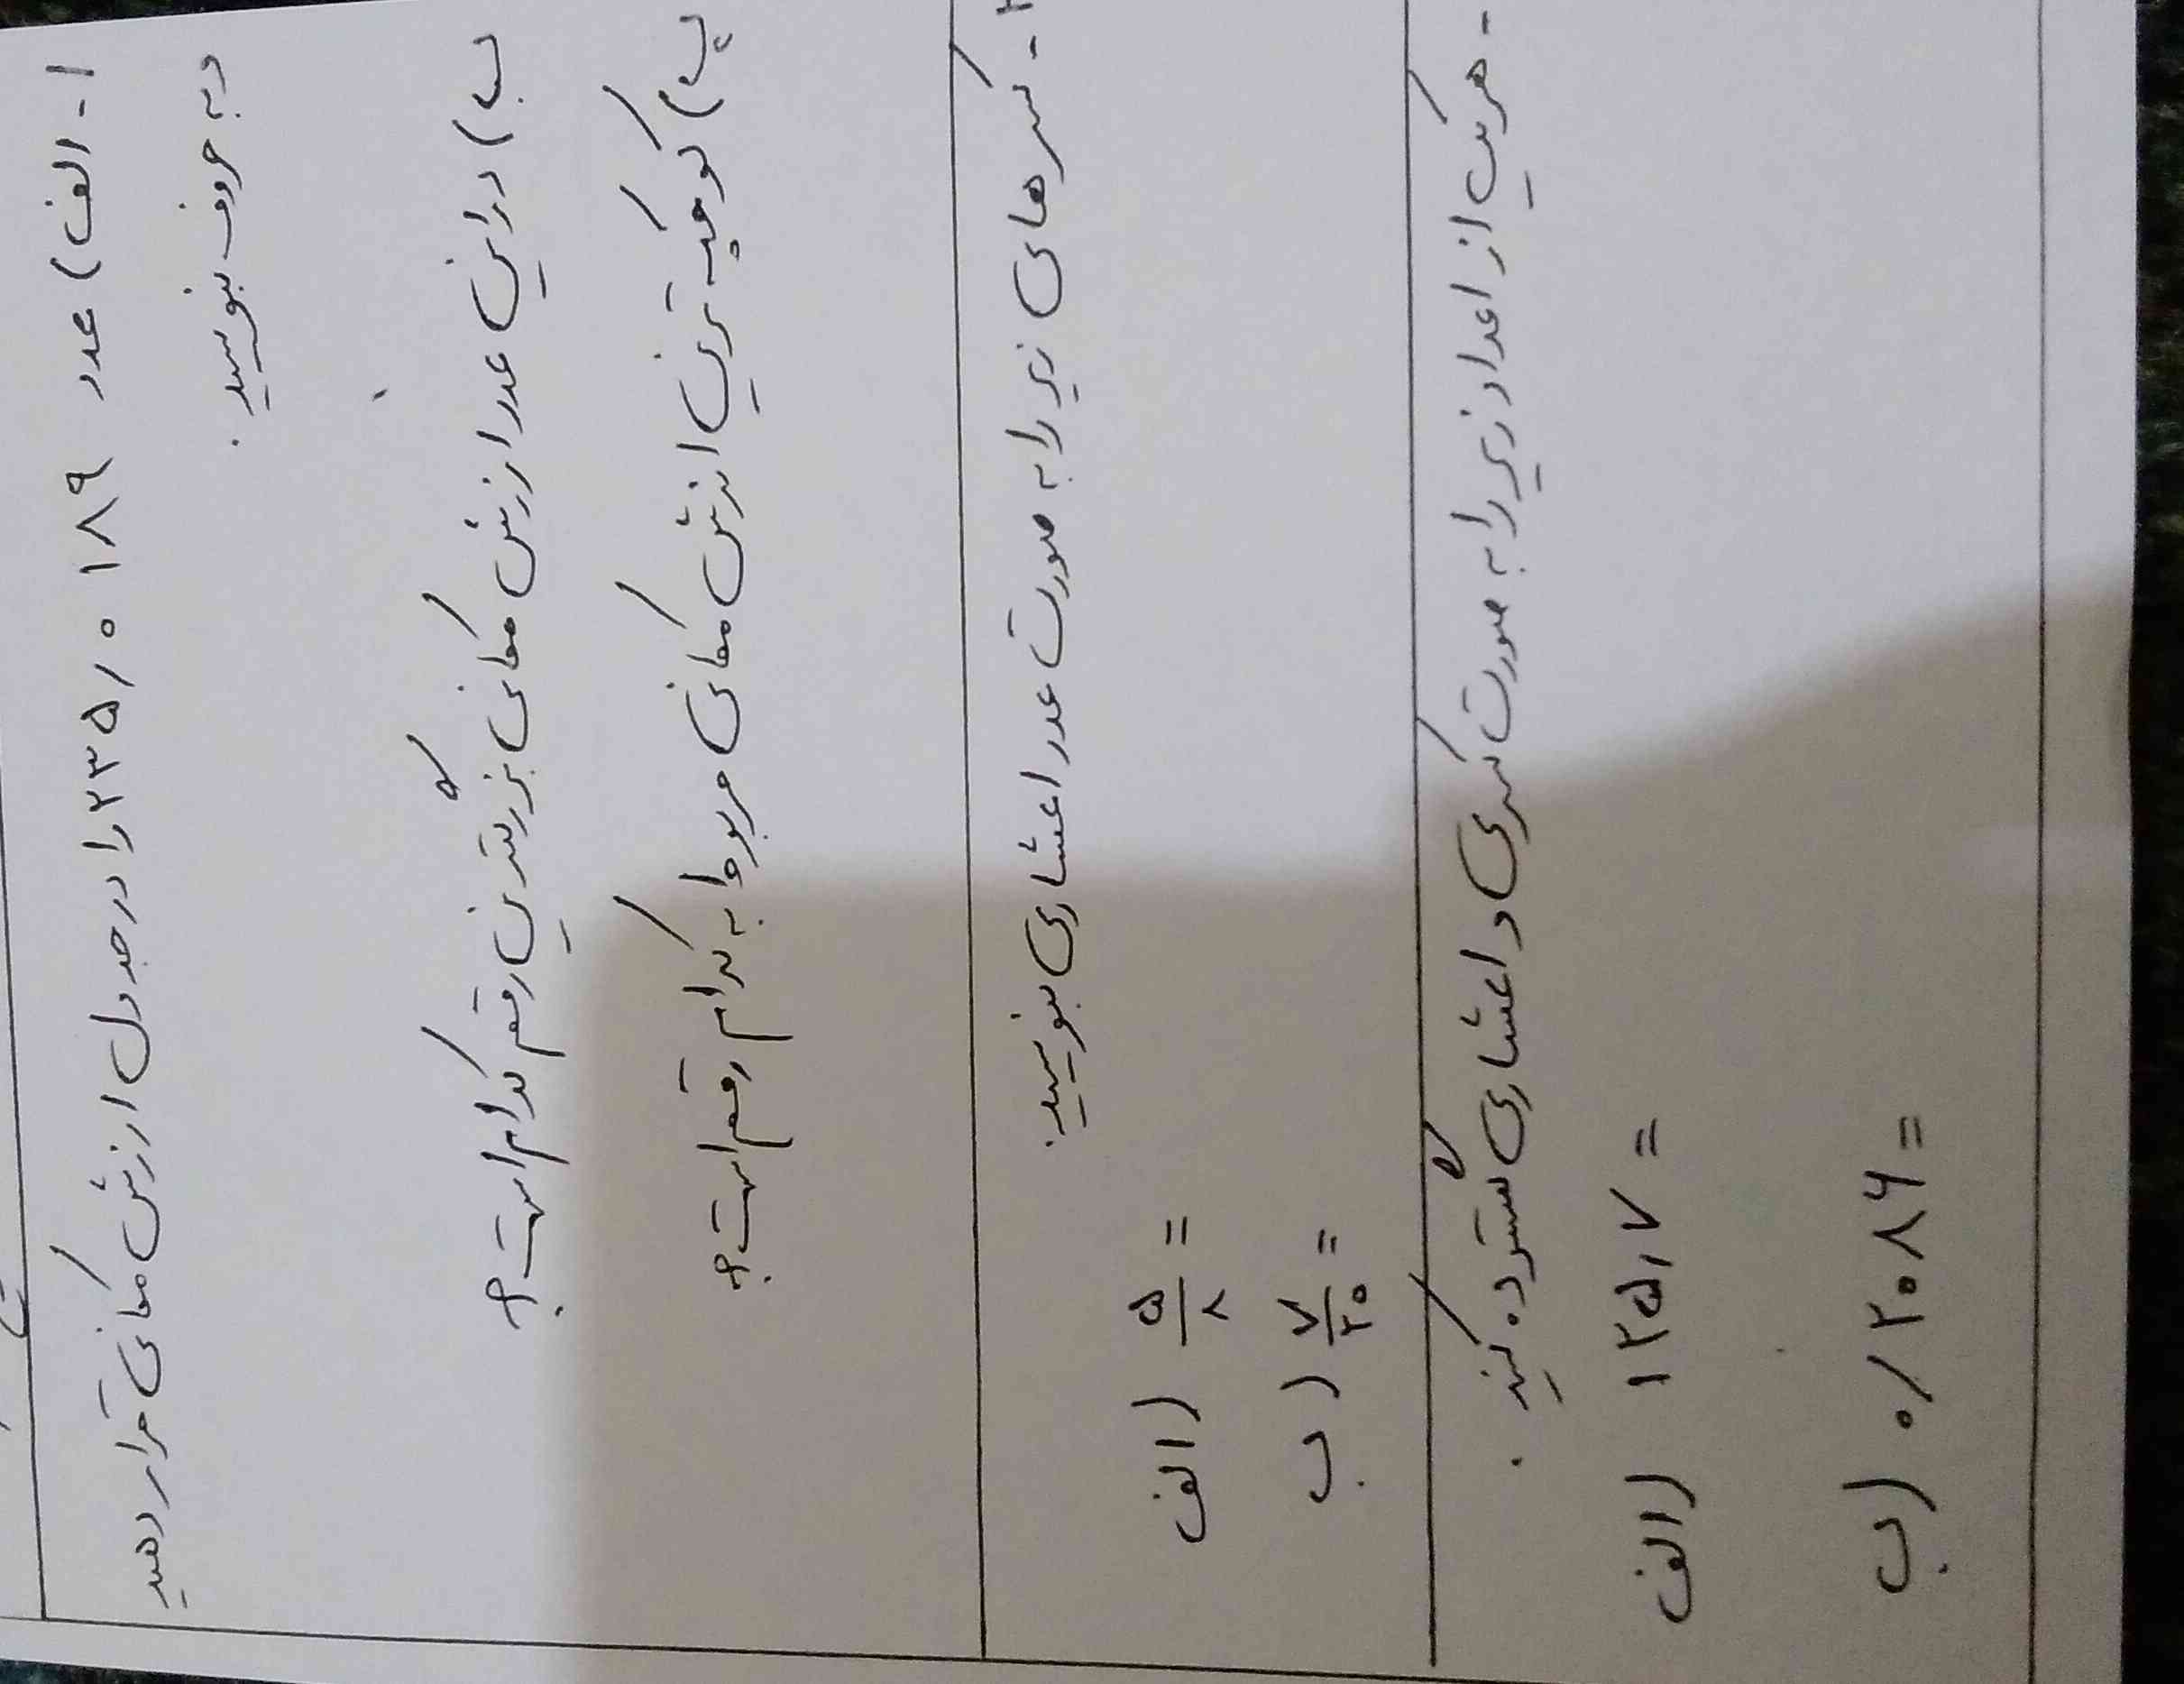 ۱- الف) عدد ۲۳۵/۰۱۸۹ را در جدول ارزش مکانی قرار دهید
و به حروف بنویسید.
ب) در این عدد ارزش مکانی بزرگترین رقم کدام است؟
پ) کوچک ترین ارزش مکانی مربوط به کدام رقم است؟
۲- کسرهای زیر را به صورت عدد اعشاری بنویسید.
الف) ۵/۸ =
ب) ۷/۲۰ =
- هریک از اعداد زیر را به صورت کسری و اعشاری گسترده کنید.
الف) ۱۲۵/۷ =
ب) ۰/۲۰۸۶ =